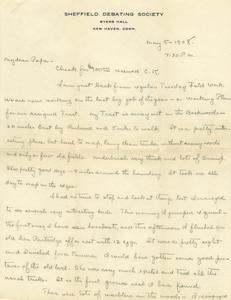 SHEFFIELD DEBATING SOCIETY
BYERS HALL
NEW HAVEN, CONN.
May 5 - 1908.
7:30 P.M.
My dear Papa:-
Check for received O.K.
I am just back from regular Tuesday Field Work.
We are now working on the last big job of the year - a Working Plan
for an assigned Tract. My Tract is away out in the Backwoods -
miles East by Railroad and miles to walk. It is a pretty
place, but hard to map, being timber without many roads
and only a few old fields. underbrush very thick and lots of Swamp.
It's a pretty good size - miles around the boundary. It took me all
day to map in the edges.
I had no time to stop and look at things, but I managed
to see several very interesting birds. This morning I
the first ones I have seen hereabouts, and this afternoon I flushed an
old hen Partridge off a nest with 12 eggs. It was a pretty sight
and I wished for a Camera. I could have gotten some good
of the old bird. She was very much excited and tried all the
usual tricks. It is the first grouse nest I have found.
There were lots of warblers in the woods - I recognized